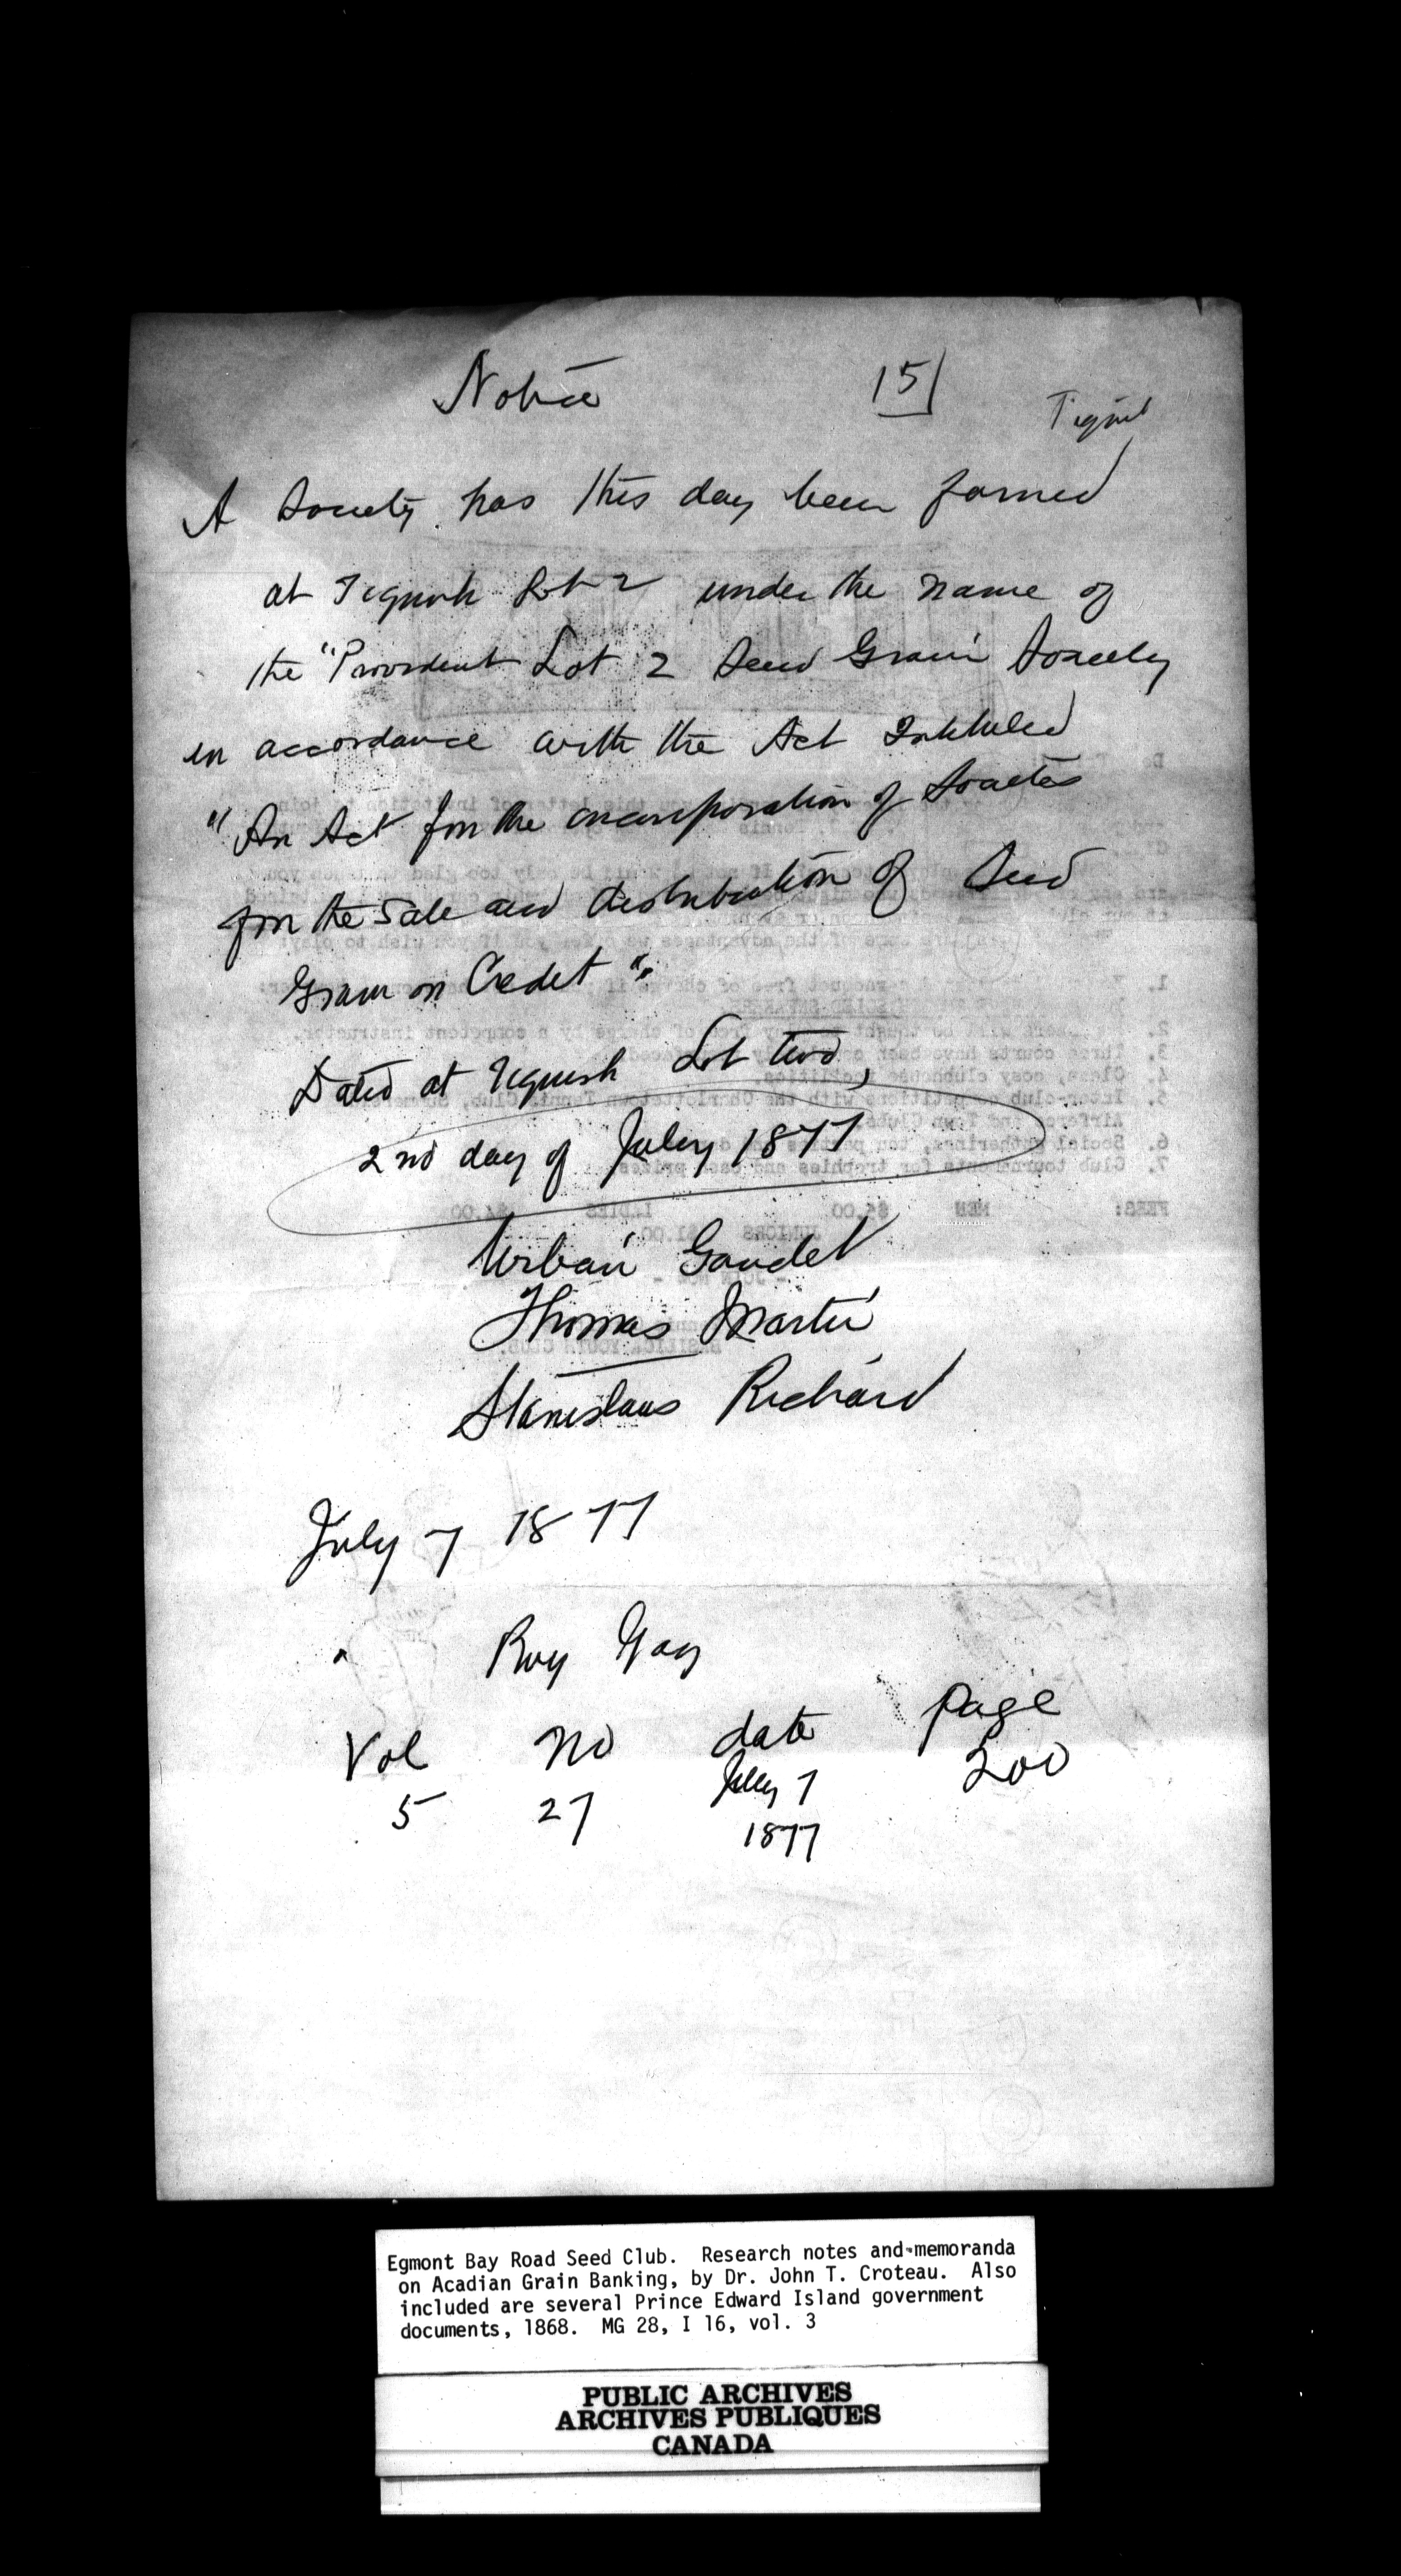 Notice
15
Tignish
A Society has this day been formed
at Tignish Lot 2 under the name of
the "Provident Lot 2 Seed Grain Society
in accordance with the Act Intituled
"An Act for the incorporation of Societies
for the sale and distribution of Seed
Grain on Credit".
Dated at Tignish Lot two,
2nd day of July 1877
Urbain Gaudet
Thomas Martin
Stanislaus Richard
July 7 1877
" Roy Gaz
Vol no date page
5 27 July 7 200
1877
Egmont Bay Road Seed Club. Research notes and memoranda
on Acadian Grain Banking, by Dr. John T. Croteau. Also
included are several Prince Edward Island government
documents, 1868. MG 28, I 16, vol. 3
PUBLIC ARCHIVES
ARCHIVES PUBLIQUES
CANADA